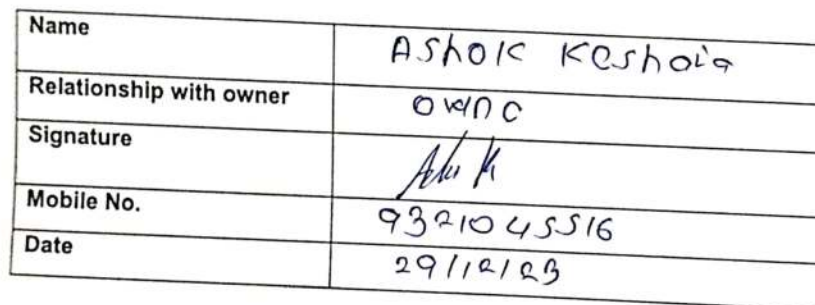 Name AShok Keshaia
Relationship with owner owne
Signature
Mobile No. 9321045516
Date 29/12/23